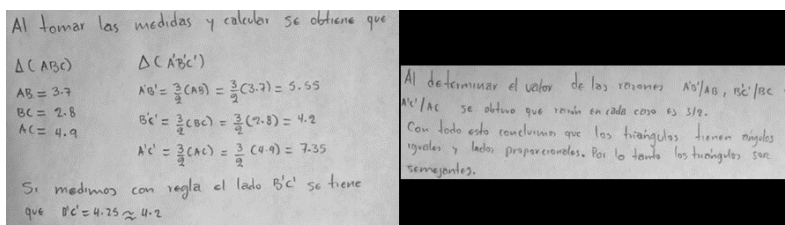 Al tomar las medidas y calcular se obtiene que
Δ(ABC) Δ(A'B'C')
AB = 3.7 A'B' = 3/2 (AB) = 3/2 (3.7) = 5.55
BC = 2.8 B'C' = 3/2 (BC) = 3/2 (2.8) = 4.2
AC = 4.9 A'C' = 3/2 (AC) = 3/2 (4.9) = 7.35
Si medimos con regla el lado B'C' se tiene
que B'C' = 4.25 ≈ 4.2
Al determinar el valor de las razones A'B'/AB, B'C'/BC
A'C'/AC se obtuvo que razón en cada caso es 3/2.
Con todo esto concluimos que los triángulos tienen ángulos
iguales y lados proporcionales. Por lo tanto los triángulos son
semejantes.